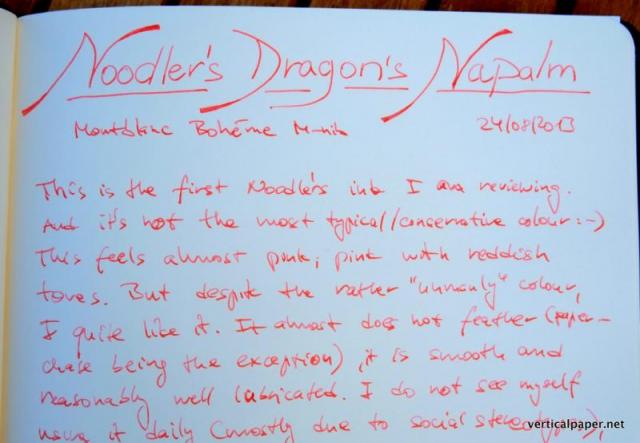 Noodler's Dragon's Napalm
Montblanc Bohème M-nib 24/08/2013
This is the first Noodler's ink I am reviewing.
And it's not the most typical/conservative colour :-)
This feels almost pink; pink with reddish
tones. But despite the rather "unmanly" colour,
I quite like it. It almost does not feather (paper-
chase being the exception), it is smooth and
reasonably well lubricated. I do not see myself
using it daily (mostly due to social stereotypes),
verticalpaper.net